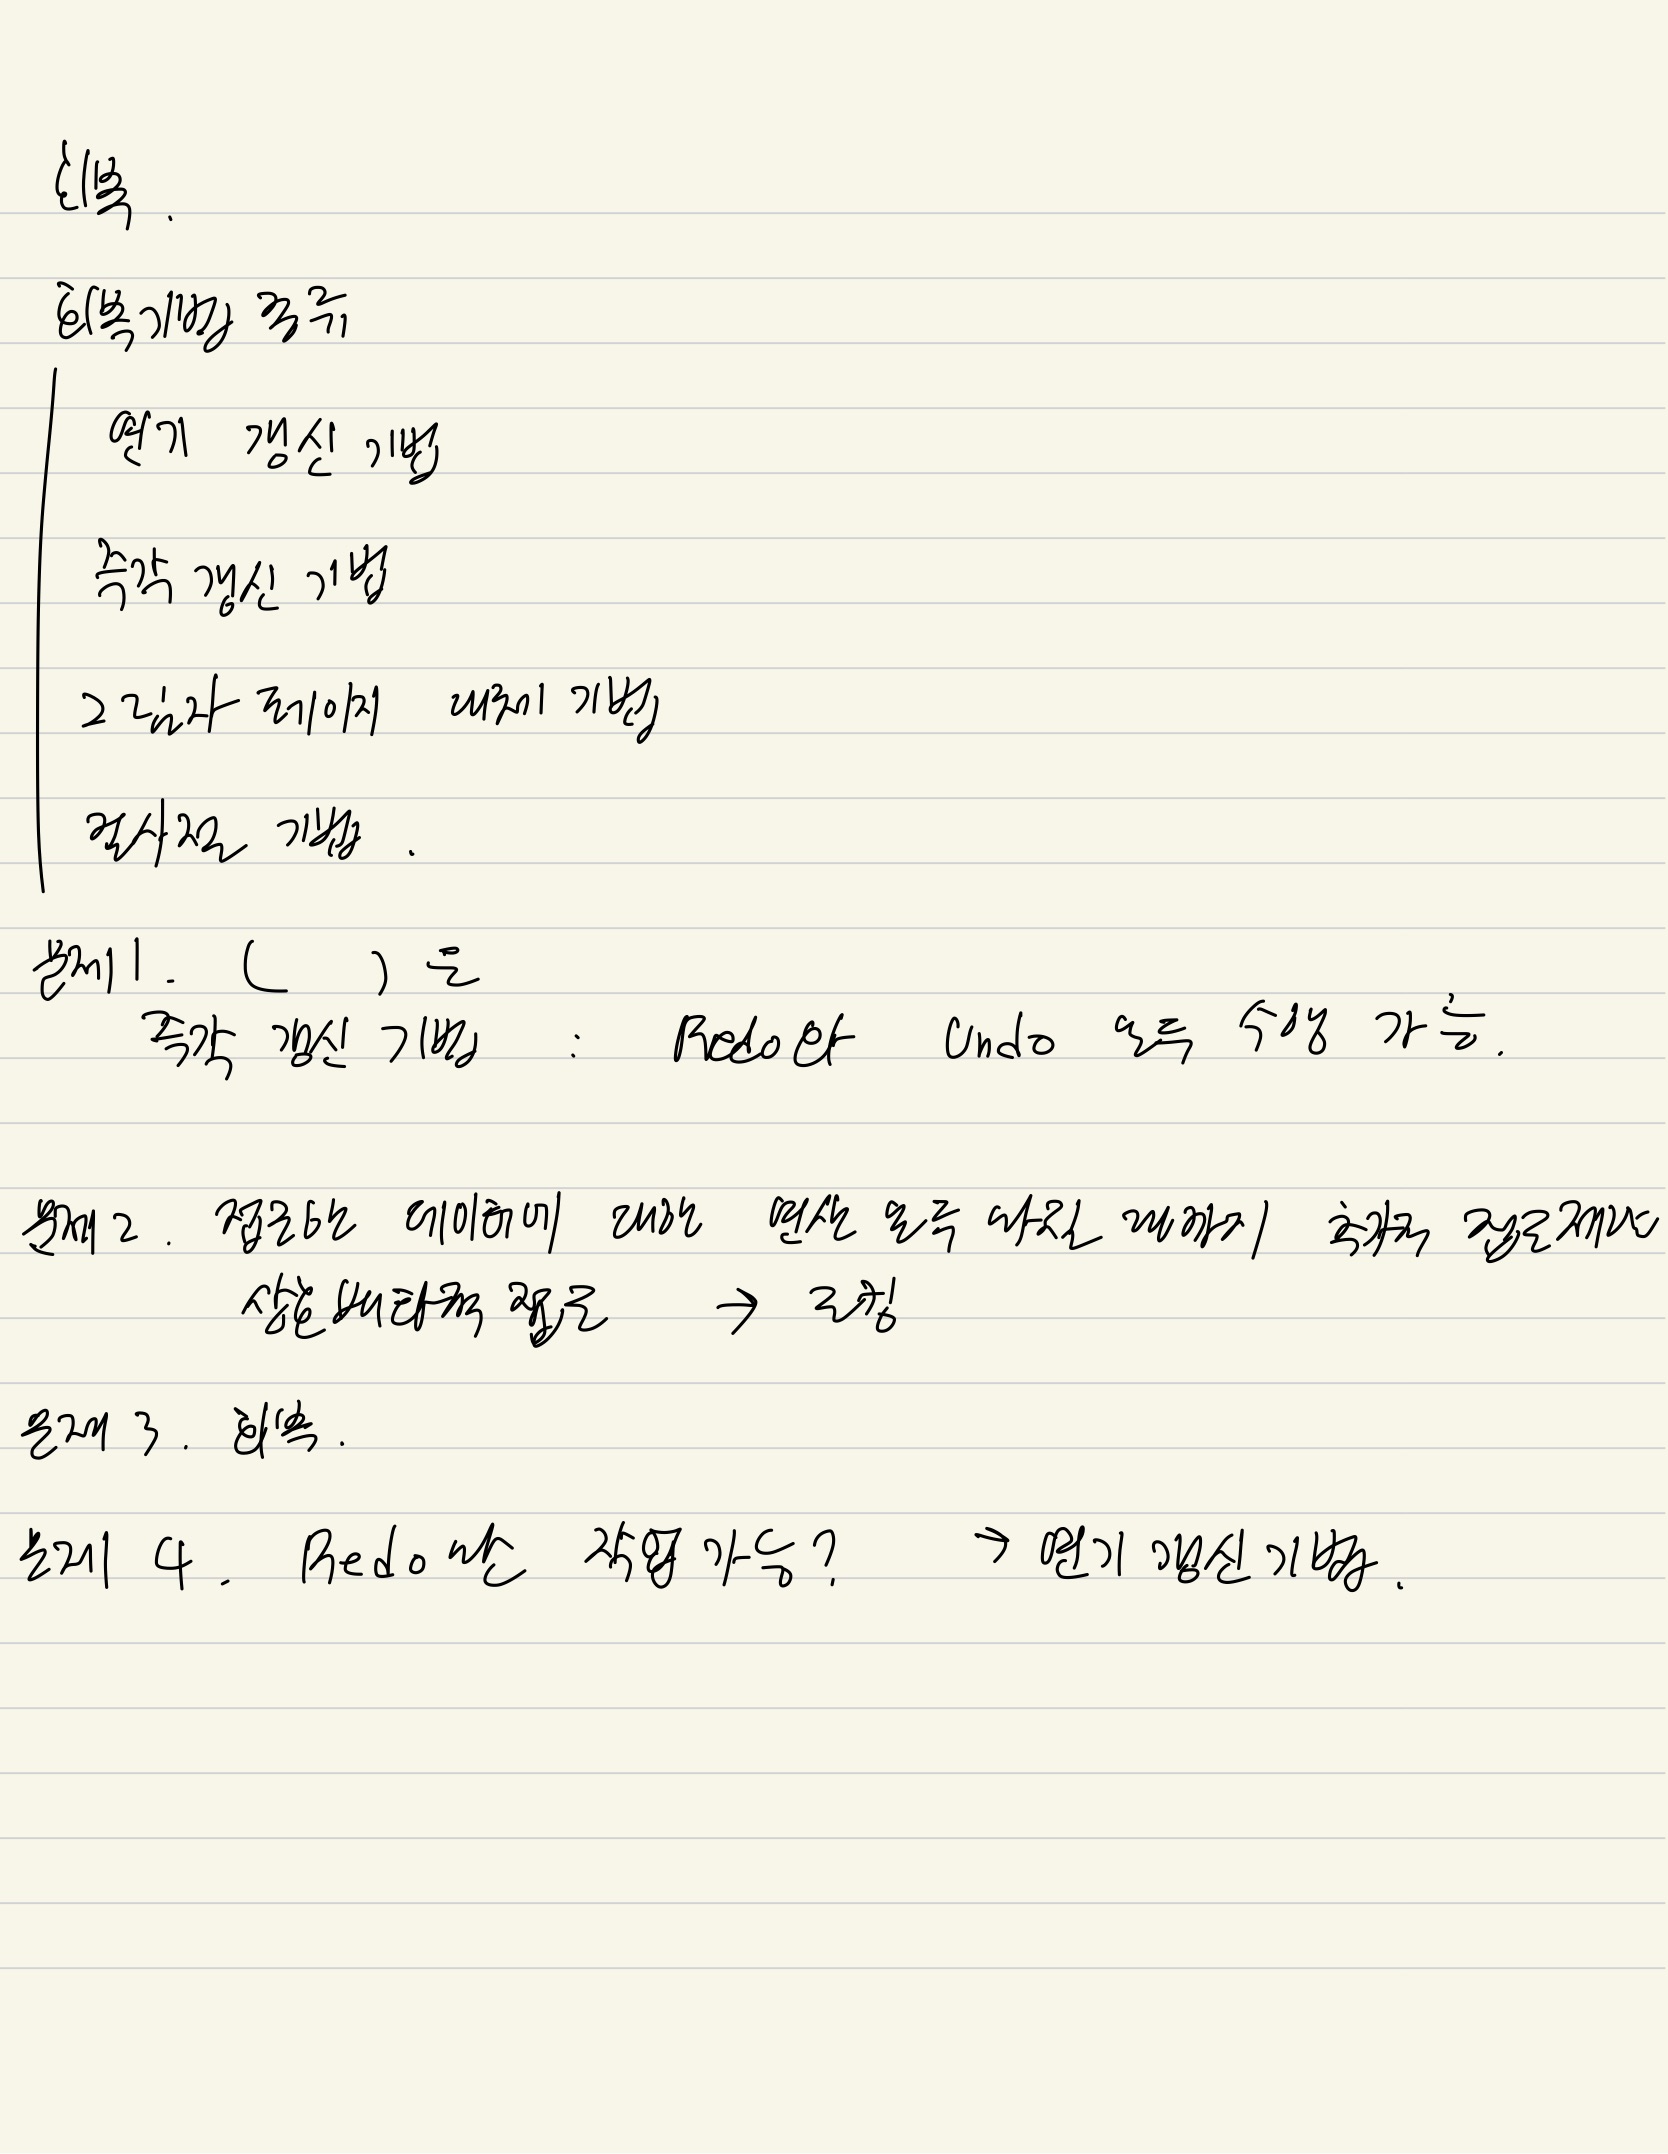 회복.
회복기법 종류
연기 갱신 기법
즉각 갱신 기법
그림자 페이지 대체 기법
검사점 기법.
문제1. ( ) 은
즉각 갱신 기법 : Redo와 Undo 모두 수행 가능.
문제2. 접근하는 데이터에 대한 연산 모두 마칠 때까지 추가적 접근제한
상호배타적 접근 → 로킹
문제 3. 회복.
문제 4. Redo만 작업 가능? → 연기 갱신 기법.